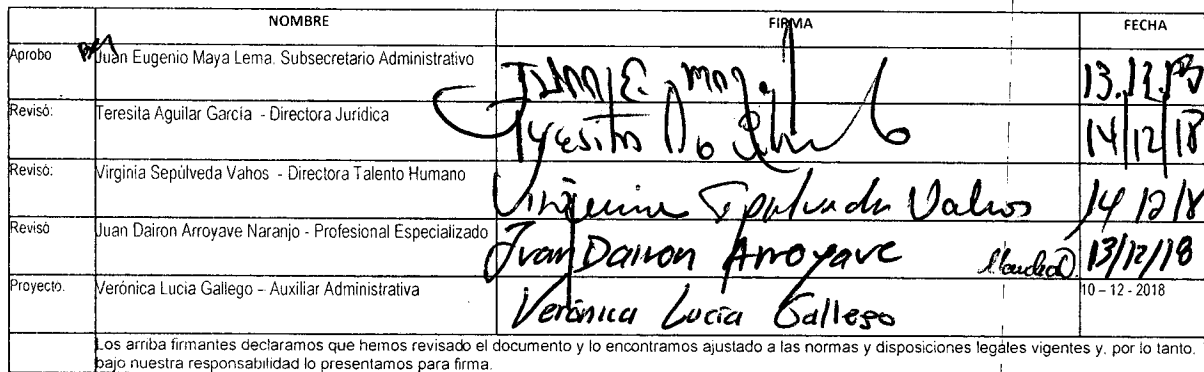 NOMBRE FIRMA FECHA
Aprobo Juan Eugenio Maya Lema. Subsecretario Administrativo 13.12.18
Revisó: Teresita Aguilar García - Directora Jurídica Teresita 14/12/18
Revisó: Virginia Sepúlveda Vahos - Directora Talento Humano Virginia Sepulveda Vahos 14/12/18
Revisó Juan Dairon Arroyave Naranjo - Profesional Especializado Juan Dairon Arroyave 13/12/18
Proyecto. Verónica Lucia Gallego – Auxiliar Administrativa Verónica Lucía Gallego 10 – 12 - 2018
Los arriba firmantes declaramos que hemos revisado el documento y lo encontramos ajustado a las normas y disposiciones legales vigentes y, por lo tanto,
bajo nuestra responsabilidad lo presentamos para firma.